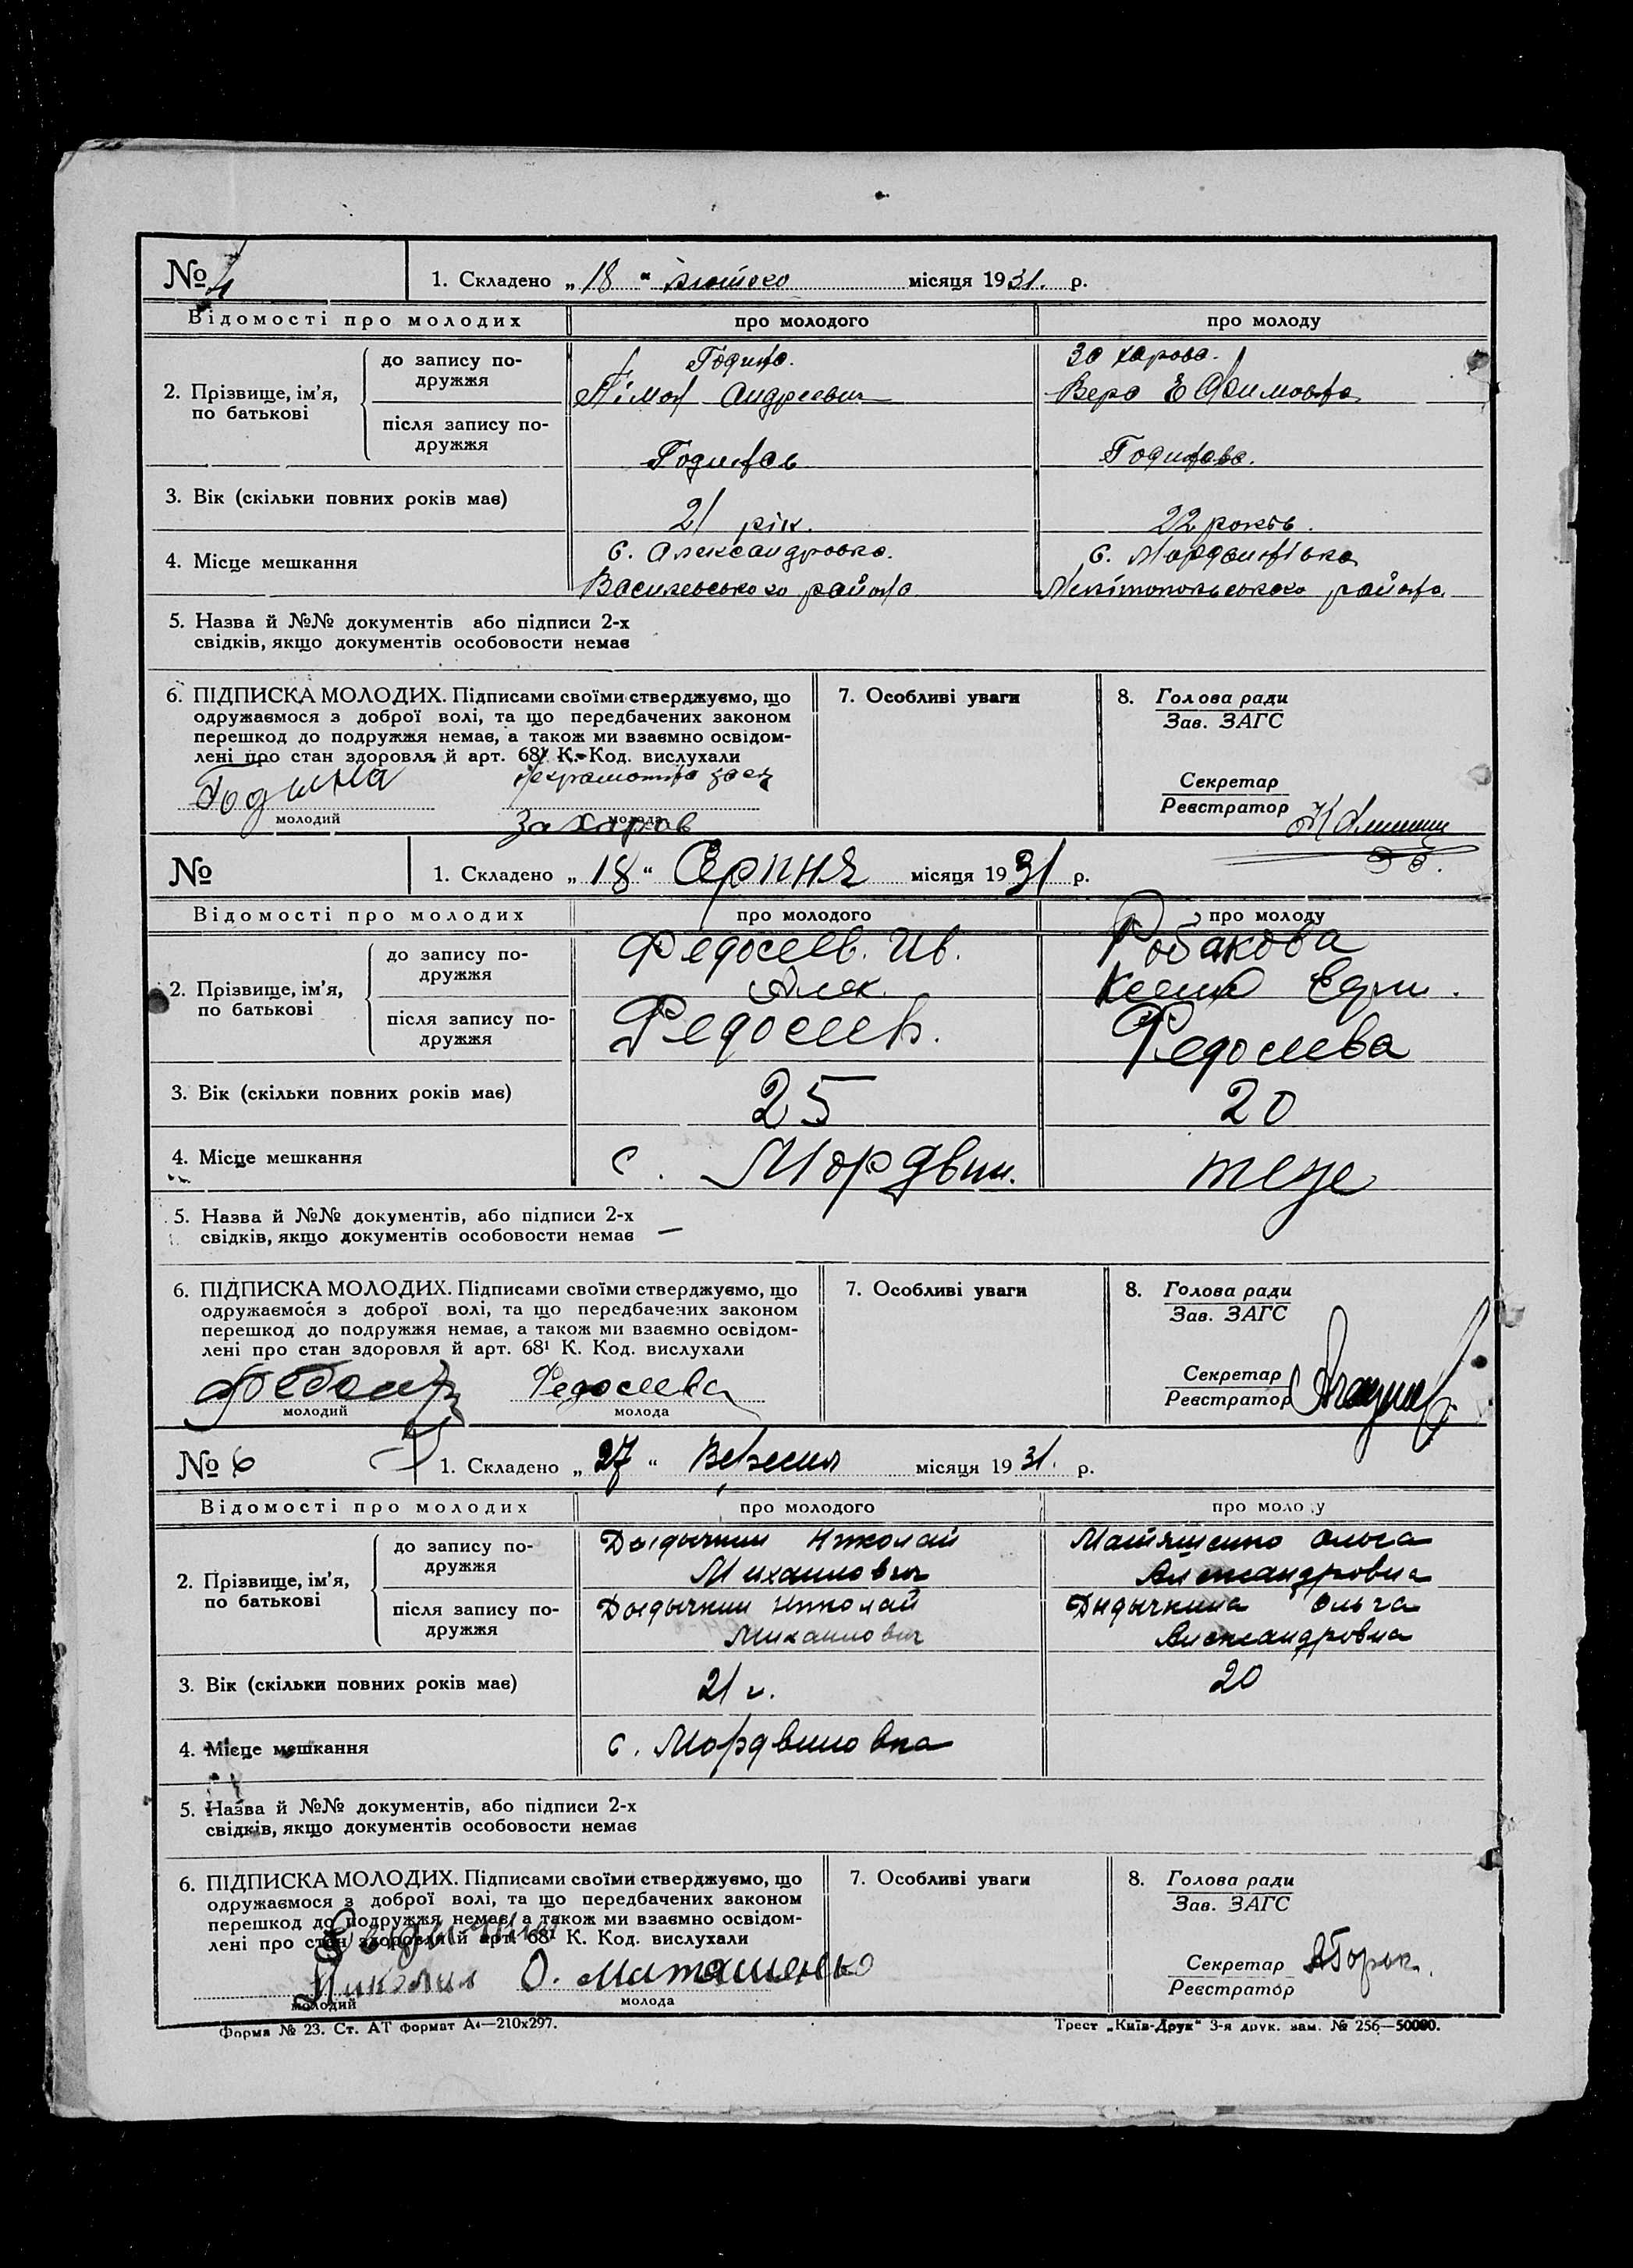 № 4
1. Складено „ 18 “ лютого місяця 1931. р.
Відомості про молодих про молодого про молоду
2. Прізвище, ім'я, по батькові
до запису подружжя
Година. Захарова.
Андреевич Вера Ефимовна
після запису подружжя
Годинов Годинова.
3. Вік (скільки повних років має) 21 рік. 22 років.
4. Місце мешкання
с. Александровка. с. Мордвинівка
Василевського района Мелітопольського района
5. Назва й №№ документів або підписи 2-х
свідків, якщо документів особовости немає
6. ПІДПИСКА МОЛОДИХ. Підписами своїми стверджуємо, що
одружаємося з доброї волі, та що передбачених законом
перешкод до подружжя немає, а також ми взаємно освідом-
лені про стан здоровля й арт. 68¹ К. Код. вислухали
Година
молодий молода
Захаров
7. Особливі уваги
8. Голова ради
Зав. ЗАГС
Секретар
Реєстратор
№
1. Складено „ 18 “ Серпня місяця 1931 р.
Відомості про молодих про молодого про молоду
2. Прізвище, ім'я, по батькові
до запису подружжя
Федосеев. Ив. Робакова
Алек. Ксения Ефи.
після запису подружжя
Федосеев. Федосеева
3. Вік (скільки повних років має) 25 20
4. Місце мешкання с. Мордвин. теже
5. Назва й №№ документів, або підписи 2-х
свідків, якщо документів особовости немає —
6. ПІДПИСКА МОЛОДИХ. Підписами своїми стверджуємо, що
одружаємося з доброї волі, та що передбачених законом
перешкод до подружжя немає, а також ми взаємно освідом-
лені про стан здоровля й арт. 68¹ К. Код. вислухали
Федосеева
молодий молода
7. Особливі уваги
8. Голова ради
Зав. ЗАГС
Секретар
Реєстратор
№ 6
1. Складено „ 27 “ Вересня місяця 1931. р.
Відомості про молодих про молодого про моло у
2. Прізвище, ім'я, по батькові
до запису подружжя
Дыдычкин Николай Матяшенко Ольга
Михаилович Александровна
після запису подружжя
Дыдычкин Николай Дыдычкина Ольга
Михаилович Александровна
3. Вік (скільки повних років має) 21 г. 20
4. Місце мешкання с. Мордвиновка
5. Назва й №№ документів, або підписи 2-х
свідків, якщо документів особовости немає
6. ПІДПИСКА МОЛОДИХ. Підписами своїми стверджуємо, що
одружаємося з доброї волі, та що передбачених законом
перешкод до подружжя немає, а також ми взаємно освідом-
лені про стан здоровля й арт. 68¹ К. Код. вислухали
О. Маташенько
молодий молода
7. Особливі уваги
8. Голова ради
Зав. ЗАГС
Секретар
Реєстратор
Форма № 23. Ст. АТ формат А4—210х297.
Трест „Київ-Друк“ 3-я друк. зам. № 256—50000.